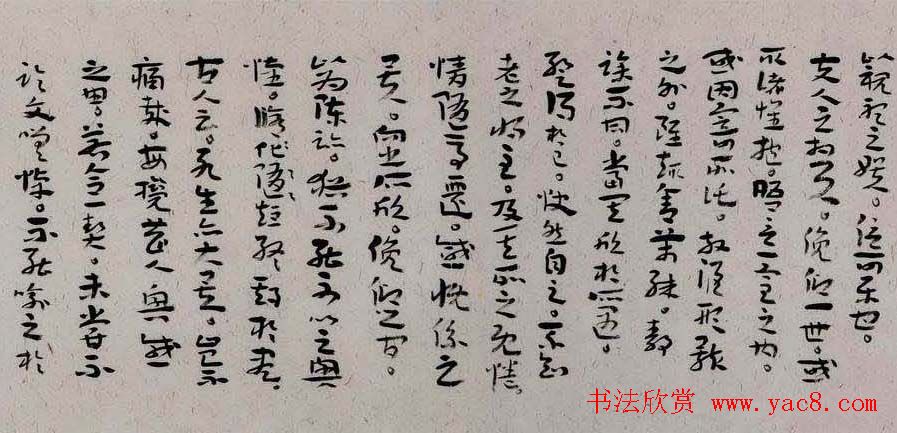 視聽之娛。信可樂也。
夫人之相與。俛仰一世。或
取諸懷抱。晤言一室之內。
或因寄所託。放浪形骸
之外。雖趣舍萬殊。靜
躁不同。當其欣於所遇。
暫得於己。快然自足。不知
老之將至。及其所之既惓。
情隨事遷。感慨係之
矣。向之所欣。俛仰之間。
以為陳迹。猶不能不以之興
懷。脩短隨化終期於盡。
古人云。死生亦大矣。豈不
痛哉。每攬昔人興感
之由。若合一契。未嘗不
臨文嗟悼。不能喻之於
书法欣赏 www.yac8.com